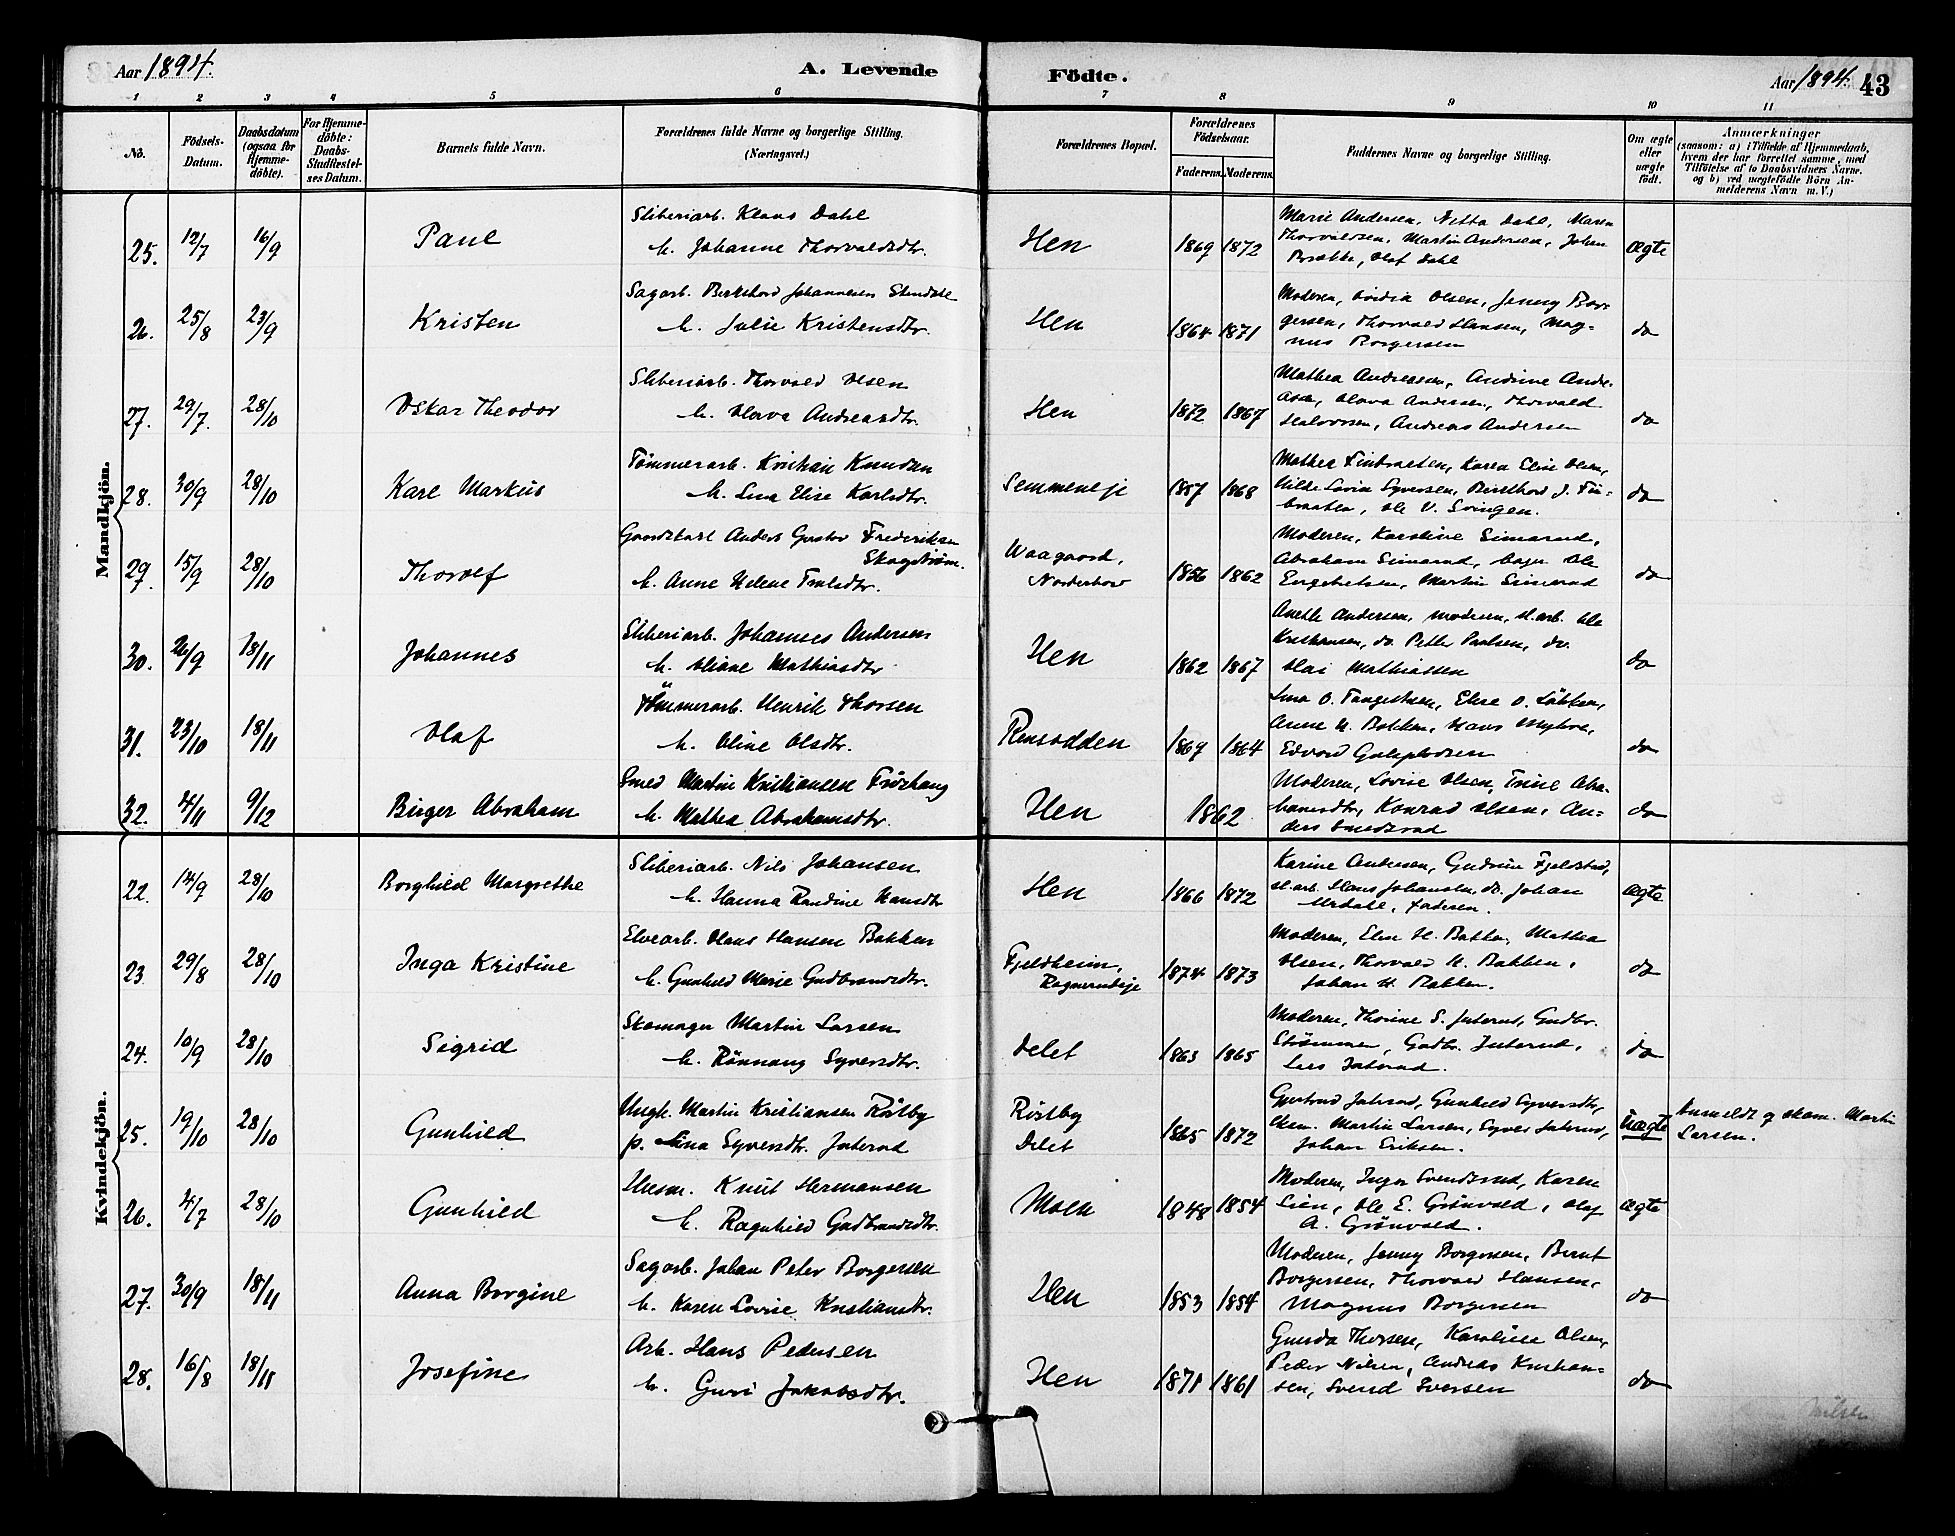 Aar 1894.
A. Levende Födte.
Aar 1894. 43
1 2 3 4 5 6 7 8 9 10 11
No.
Födsels-Datum.
Daabsdatum (ogsaa for Hjemme-döbte).
For Hjemme-döbte: Daabs-Stadfæstel-ses Datum.
Barnets fulde Navn.
Forældrenes fulde Navne og borgerlige Stilling. (Næringsvei.)
Forældrenes Bopæl.
Forældrenes Födselsaar.
Faderens. Moderens.
Faddernes Navne og borgerlige Stilling.
Om ægte eller uægte födt.
Anmærkninger
(saasom: a) i Tilfælde af Hjemmedaab, hvem der har forrettet samme, med Tilföielse af to Daabsvidners Navne. og b) ved uægtefödte Börn An-melderens Navn m. V.)
Mandkjön.
25. 12/7 16/9 Paul
Sliberiarb. Klaus Dahl
h. Johanne Thorvaldsdtr.
Hen 1869 1872
Marie Andersen, Netta Dahl, Maren
Thorvaldsen, Martin Andersen, Johan
Olaf Dahl
ægte
26. 25/8 23/9 Kristen
Sagarb. Berthord Johannesen
h. Julie Kristensdtr.
Hen 1864 1871
Moderen, Olsen, Jenny Bor-
gersen, Thorvald Hansen, Mag-
nus Borgersen
do
27. 29/7. 28/10 Oskar Theodor
Sliberiarb. Thorvald Olsen
h. Olava Andreasdtr.
Hen 1872 1867
Mathea Andreasen, Andrine Andre-
asen, Olava Andersen, Thorvald
Halvorsen, Andreas Andersen
do
28. 30/9 28/10 Karl Markus
Tömmerarb. Kristian Knudsen
h. Lina Elise Karlsdtr.
Semmeneje 1857 1868
Mathea Finbraaten, Karen Elise Olsen,
Syversen, J. Fin-
braaten, Ole V. Svingen.
do
29. 15/9 28/10 Thorolf
Gaardskarl Anders Gustav Frederiksen
Skogstrøm.
h. Anne Helene Trulsdtr.
Waagaard,
Norderhov
1856 1862
Moderen, Karoline Simarud,
Abraham Simarud, bager Ole
Engebretsen, Martin Simarud
do
30. 26/9 18/11 Johannes
Sliberiarb. Johannes Andersen
h. Oliane Mathiasdtr.
Hen 1862 1867
Anethe Andersen, moderen, sl.arb. Ole
Kristiansen, do. Petter Paulsen, do.
Olai Mathiassen
do
31. 23/10 18/11 Olaf
Tömmerarb. Henrik Thorsen
h. Oline Olsdtr.
Rensodden 1869 1864
Lina O. Elise O. Løkken,
Anne H. Bakken, Hans Myhre,
Edvard
do
32. 4/11 9/12 Birger Abraham
Smed Martin Kristiansen
h. Mathea Abrahamsdtr.
Hen 1862
Moderen, Lovise Olsen, Trine Abra-
hamsdtr, Konrad Olsen, An-
ders
do
Kvindekjön.
22. 14/9 28/10 Borghild Margrethe
Sliberiarb. Nils Johansen
h. Hanna Randine Hansdtr
Hen 1866 1872
Karine Andersen, Gudrun Fjeldstad,
sl.arb. Hans Johansen, do. Johan
Urdahl, faderen.
ægte
23. 29/8 28/10 Inga Kristine
Elvearb. Hans Hansen Bakken
h. Gunhild Marie Gudbrandsdtr.
Fjeldheim,
1874 1873
Moderen, Elise H. Bakken, Mathea
Olsen, Thorvald H. Bakken,
Johan H. Bakken.
do
24. 10/9 28/10 Sigrid
Skomager Martin Larsen
h. Rönnaug Syversdtr.
Delet 1863 1865
Moderen, Thorine S. Juterud, Gudbr.
Strømmen, Gudbr. Juterud,
Lars Juterud.
do
25. 19/10 28/10 Gunhild
Ungk. Martin Kristiansen Røstby
p. Lina Syversdtr. Juterud
Röstby
Delet
1865 1872
Gjertrud Juterud, Gunhild Syversdtr,
skom. Martin Larsen, Syver Juterud,
Johan Eriksen.
uægte
Anmeldt af skom. Martin
Larsen.
26. 4/7 28/10 Gunhild
Husm. Knut Hermansen
h. Ragnhild Gudbrandsdtr.
Moen 1848 1854
Moderen, Inger Svendsrud, Karen
Lien, Ole E. Grönvold, Olaf
A. Grönvold.
ægte
27. 30/9 18/11 Anna Borgine
Sagarb. Johan Peter Borgersen
h. Karen Lovise Kristiansdtr.
Hen 1853 1854
Moderen, Jenny Borgersen, Bernt
Borgersen, Thorvald Hansen,
Magnus Borgersen
do
28. 16/8 18/11 Josefine
Arb. Hans Pedersen
h. Guri Jakobsdtr.
Hen 1871 1861
Gunda Thorsen, Karoline Olsen,
Peder Nilsen, Andreas Kristian-
sen, Svend Iversen
do